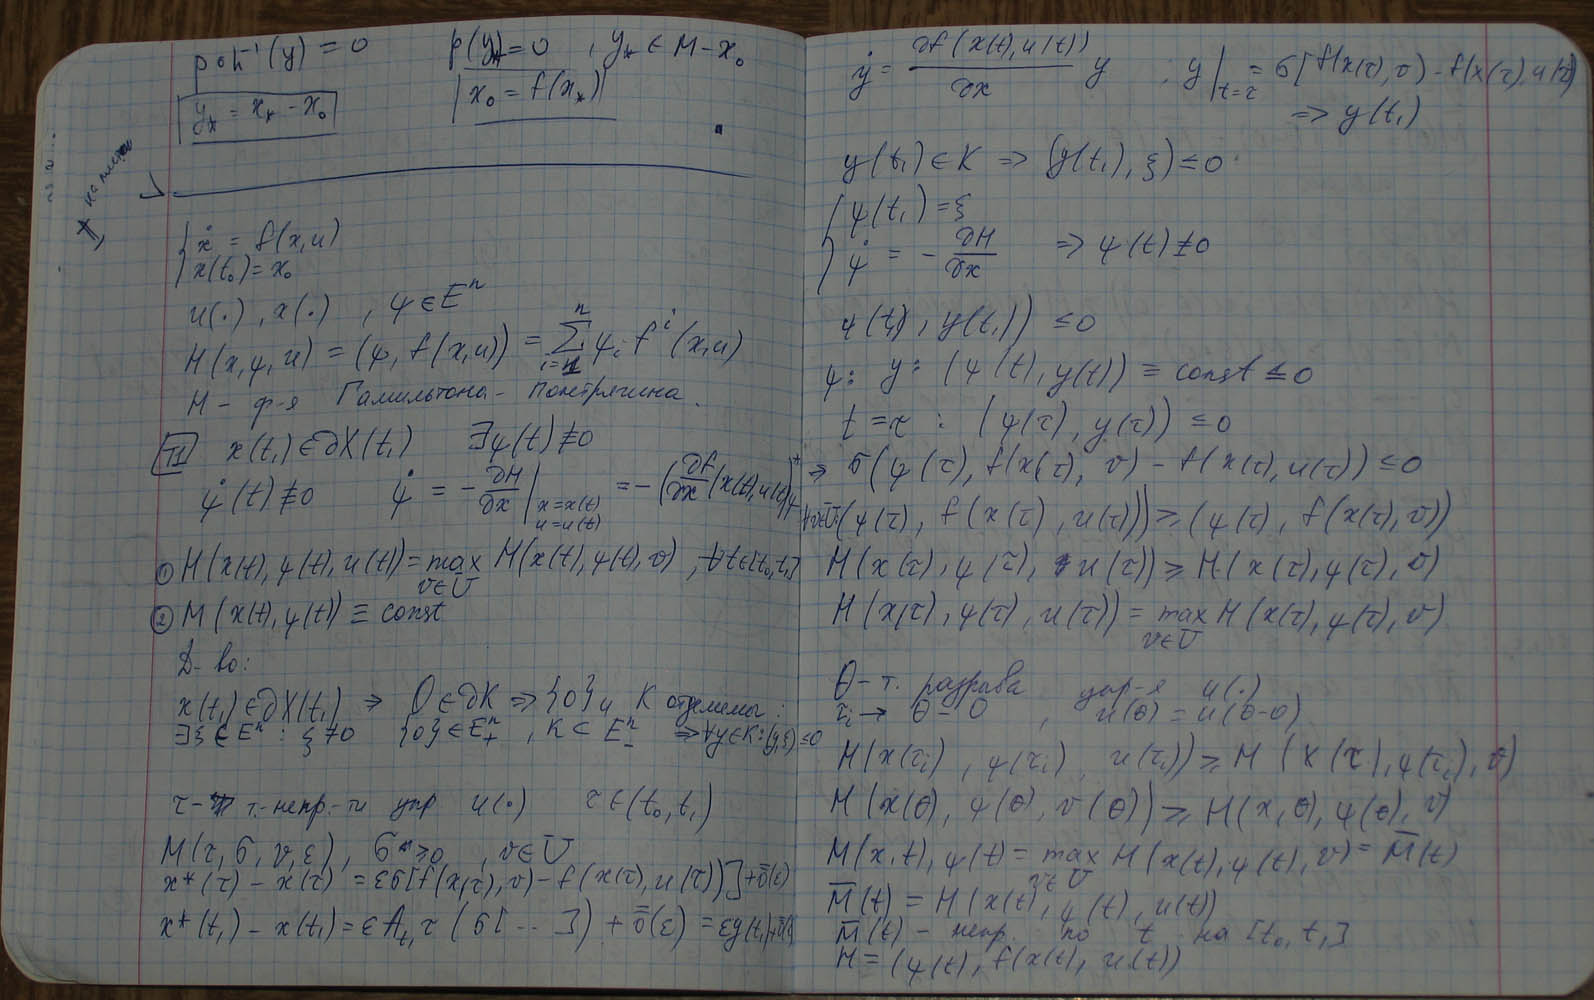 p∘h⁻¹(y) = 0    p(y*) = 0 , y* ∈ M - x₀
y* = x* - x₀    x₀ = f(x*)
{ ẋ = f(x,u)
x(t₀) = x₀
u(·), x(·) , ψ ∈ Eⁿ
H(x,ψ,u) = (ψ, f(x,u)) = Σᵢ₌₁ⁿ ψᵢ fⁱ(x,u)
H - ф-я Гамильтона - Понтрягина.
T1  x(t₁) ∈ ∂X(t₁)   ∃ψ(t) ≠ 0
ψ(t) ≠ 0   ψ̇ = - ∂H/∂x | x=x(t) u=u(t) = - (∂f/∂x (x(t), u(t)))* ψ
① H(x(t), ψ(t), u(t)) = max v∈U H(x(t), ψ(t), v) , ∀t∈[t₀,t₁]
② M(x(t), ψ(t)) ≡ const
Д-во:
x(t₁) ∈ ∂X(t₁) ⇒ 0 ∈ ∂K ⇒ {0} и K отделимы:
∃ξ ∈ Eⁿ : ξ ≠ 0   {0} ∈ Eⁿ₊ , K ⊂ Eⁿ₋ ⇒ ∀y∈K: (y,ξ) ≤ 0
τ - т. непр-ти упр u(·)   τ ∈ (t₀, t₁)
M(τ, σ, v, ε) , σ ≥ 0 , v ∈ U
x*(τ) - x(τ) = εσ[f(x(τ), v) - f(x(τ), u(τ))] + ō(ε)
x*(t₁) - x(t₁) = εA t₁,τ (σ[ ... ]) + ō(ε) = εy(t₁) + ō(ε)
ẏ = ∂f(x(t), u(t))/∂x y ; y|t=τ = σ[f(x(τ), v) - f(x(τ), u(τ))]
⇒ y(t₁)
y(t₁) ∈ K ⇒ (y(t₁), ξ) ≤ 0
{ ψ(t₁) = ξ
ψ̇ = - ∂H/∂x ⇒ ψ(t) ≠ 0
ψ(t₁), y(t₁)) ≤ 0
ψ: y: (ψ(t), y(t)) ≡ const ≤ 0
t = τ : (ψ(τ), y(τ)) ≤ 0
⇒ σ(ψ(τ), f(x(τ), v) - f(x(τ), u(τ))) ≤ 0
∀v∈U: (ψ(τ), f(x(τ), u(τ))) ≥ (ψ(τ), f(x(τ), v))
H(x(τ), ψ(τ), u(τ)) ≥ H(x(τ), ψ(τ), v)
H(x(τ), ψ(τ), u(τ)) = max v∈U H(x(τ), ψ(τ), v)
θ - т. разрыва упр-я u(·)
τᵢ → θ - 0 , u(θ) = u(θ-0)
H(x(τᵢ), ψ(τᵢ), u(τᵢ)) ≥ H(x(τᵢ), ψ(τᵢ), v)
H(x(θ), ψ(θ), v(θ)) ≥ H(x,θ), ψ(θ), v)
M(x,t), ψ(t) = max v∈U H(x(t), ψ(t), v) = M̄(t)
M̄(t) = H(x(t), ψ(t), u(t))
M̄(t) - непр. по t на [t₀, t₁]
H = (ψ(t), f(x(t), u(t))